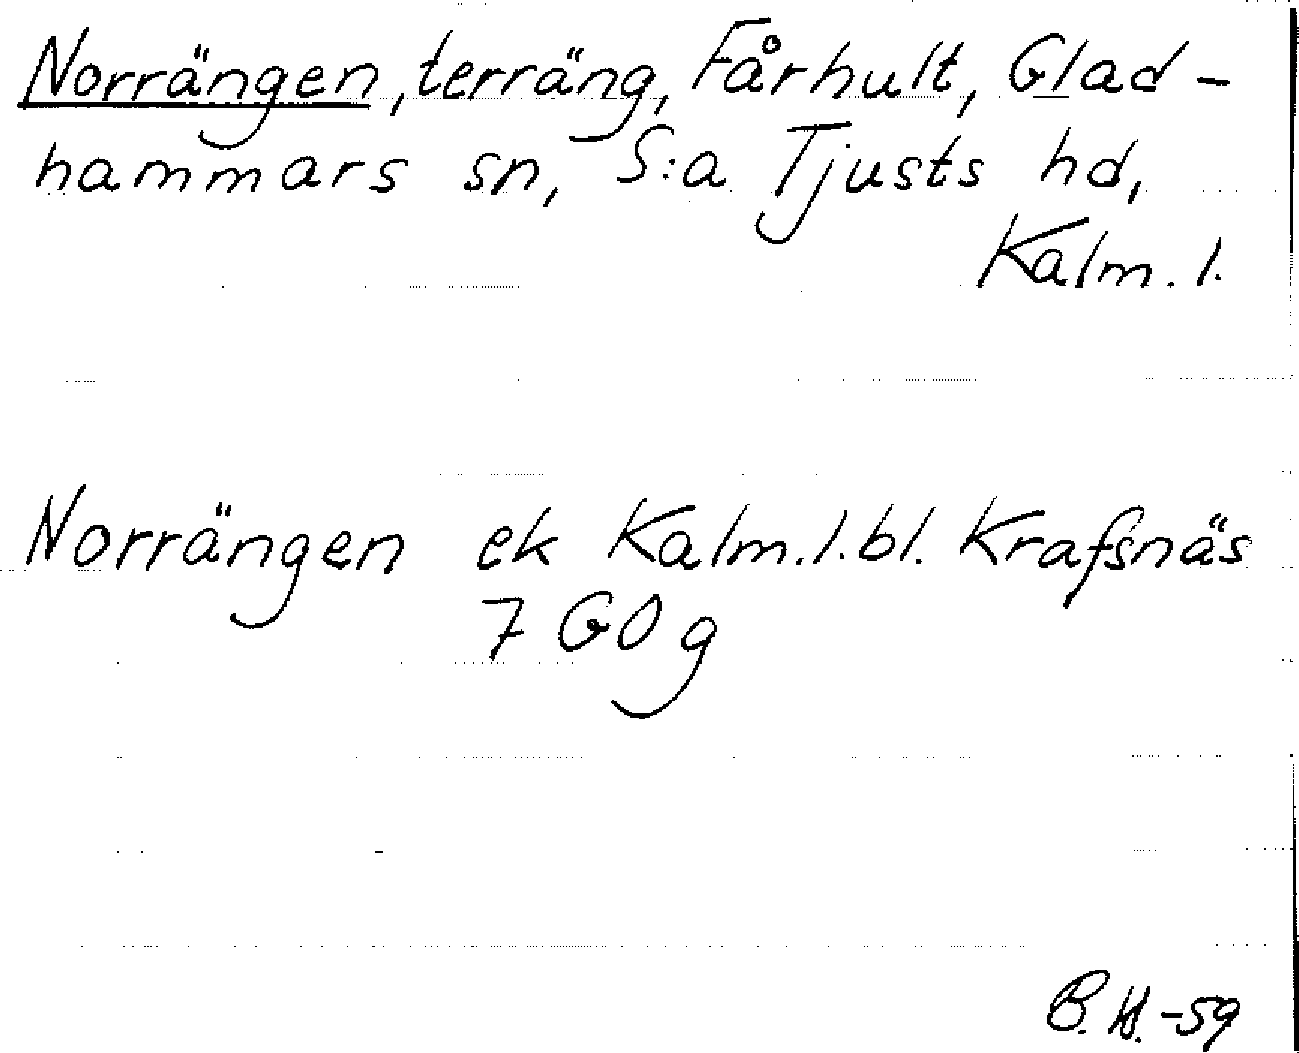 Norrängen, terräng, Fårhult, Glad-
hammars sn, S:a Tjusts hd,
Kalm. l.
Norrängen ek Kalm.l.bl. Krafsnäs
7 GO g
B.H.-59